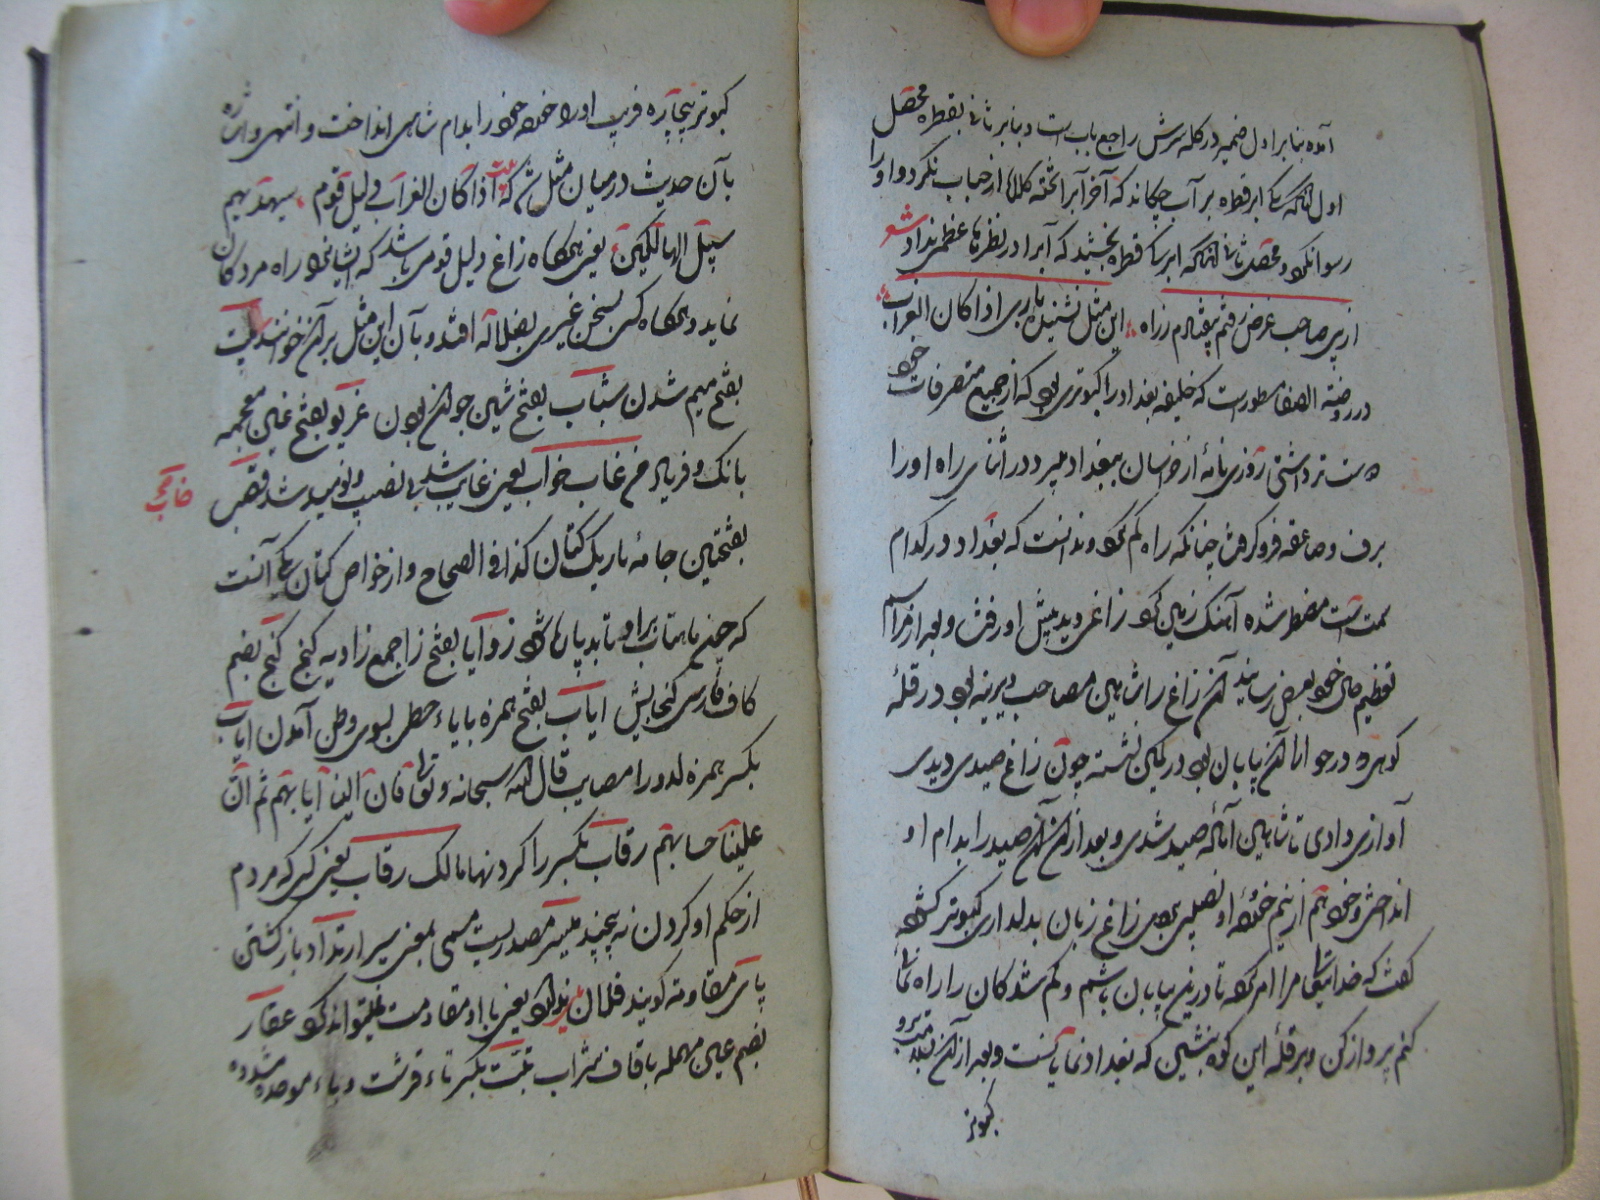 آمده بنابر اول ضمیر در کله سرش راجع باب است و بنابر ثانی بقطره محصل
اول آنکه ابر قطره بر آب چکاند که آخر آبرا از حباب نکرد و او را
رسوا نکرد و محصل ثانی آنکه ابر یک قطره بخشید که آبرا در نظرها عظمی نداد شعر
از پی صاحب غرض رفتم بیفتادم ز راه این مثل نشنیده باری اذا کان الغراب
در روضة الصفا مسطور است که خلیفه بغداد را کبوتری بود که از جمیع متصرفات خود
دوست تر داشتی روزی نامهٔ از خراسان ببغداد میبرد در اثنای راه او را
برف و صاعقه فرو گرفت چنانکه راه گم کرد و ندانست که بغداد در کدام
سمت است مضطر شده آهنک زمین کرد زاغی دید پیش او رفت و بعد از مراسم
تعظیم حال خود بعرض رسانید آن زاغ را شاهین مصاحب دیرینه بود در قلهٔ
کوهی در حوالی آن بیابان بود در کمین نشسته چون زاغ صیدی دیدی
آوازی دادی تا شاهین آماده صید شدی و بعد از آن آن صید را بدام او
انداختی و خود هم از نیم خوردهٔ او نصیبی بردی زاغ زبان بدلداری کبوتر کشوده
گفت که خدایتعالی مرا امر کرده تا درین بیابان باشم و گم شدکان را راه نمائی
کنم پرواز کن و بر قلهٔ این کوه بنشین که بغداد نمایانست و بعد از آن
کبوتر
کبوتر بیچاره فریب او خورده خود را بدام شاهین انداخت و انتهی و اشاره
بآن حدیث در میان مثل شد که بیت اذا کان الغراب دلیل قوم سیهدیهم
سبیل الهالکین یعنی هرگاه زاغ دلیل قومی باشد که ایشانرا راه مردکان
نماید و هرگاه کسی بسخن غیری بضلاله افتد و بآن این مثل بر آن خوانند
بفتح میم شدن شباب بفتح شین جوان بودن غریو بفتح غین معجمه
بانک و فریاد غاب خاب یعنی غایب شد بی نصیب و نومید شد قصب
خاب
بفتحتین جامهٔ باریک کتان کذا فی الصحاح و از خواص کتان یکی آنست
که چون ماهتاب بر او تابد پاره شود زوایا بفتح زا جمع زاویه کنج کنج بضم
کاف فارسی کنجایش ایاب بفتح همزه بایاء حطی بسوی وطن آمدن ایاب
بکسر همزه قال الله سبحانه و تعالی فان الینا ایابهم ثم ان
علینا حسابهم رقاب بکسر را کردنها مالک رقاب یعنی کسی که مردم
از حکم او کردن نه پیچند مسیر مصدریست میمی بمعنی سیر ارتداد باز کشتن
پای مقاومة کویند فلان یعنی با او مقاومت نمیتواند کرد عقار
بضم عین مهمله با قاف شراب تبت بکسر تاء قرشت و باء موحده مشدده